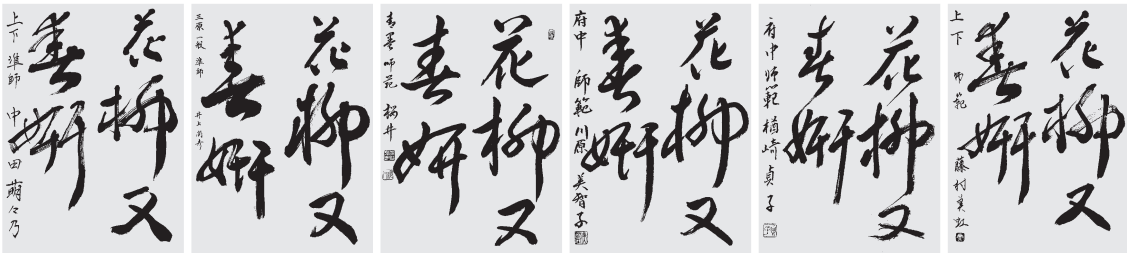 花柳又
春妍
上下 準師 中田萌々乃
花柳又
春妍
三原一般 準師 井上
花柳又
春妍
青墨 師範
花柳又
春妍
府中 師範 川原美智子
花柳又
春妍
府中 師範 楢崎貞子
花柳又
春妍
上下 師範 藤村美